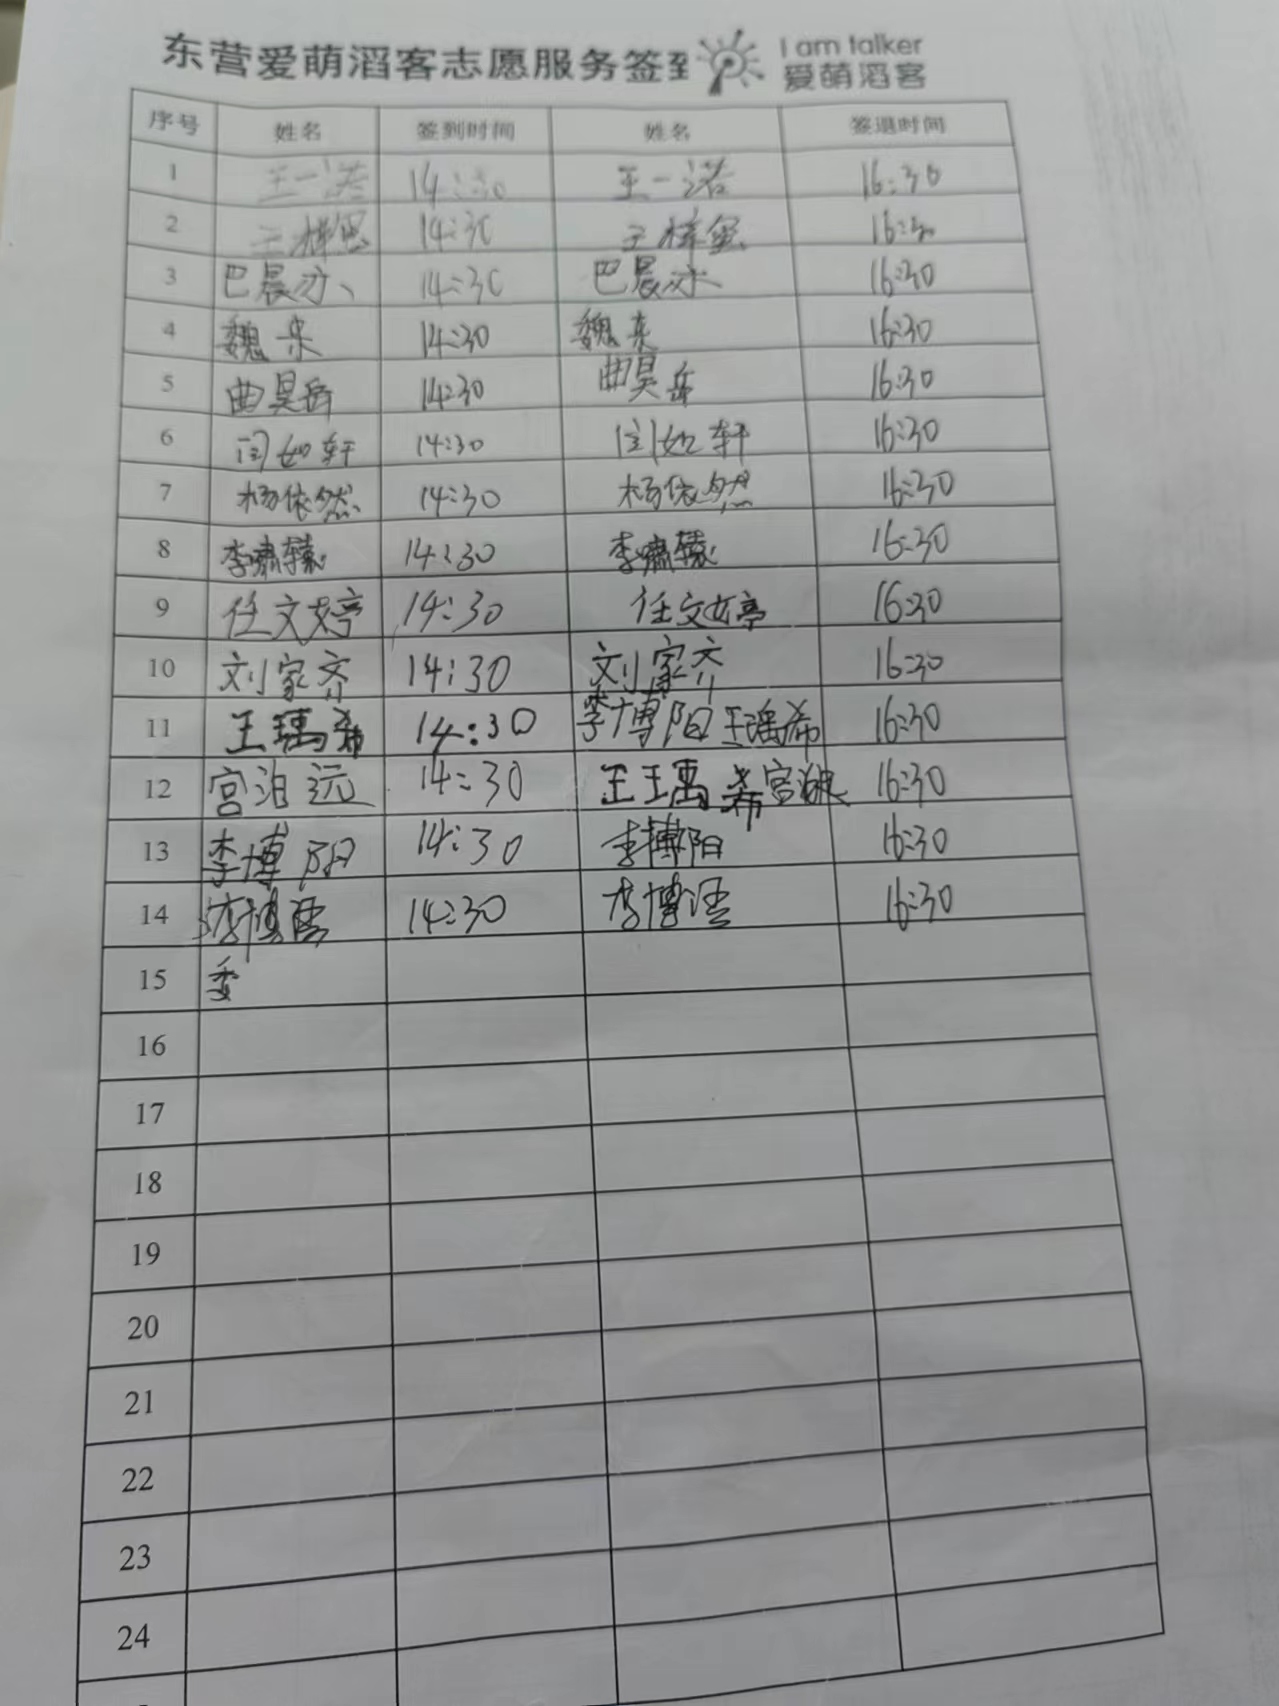 东营爱萌滔客志愿服务签到
I am talker
爱萌滔客
序号 姓名 签到时间 姓名 签退时间
1 王一诺 14:30 王一诺 16:30
2 王梓 14:30 王梓 16:30
3 巴晨亦 14:30 巴晨亦 16:30
4 魏来 14:30 魏来 16:30
5 曲昊岳 14:30 曲昊岳 16:30
6 闫如轩 14:30 闫如轩 16:30
7 杨依然 14:30 杨依然 16:30
8 李啸辕 14:30 李啸辕 16:30
9 任文婷 14:30 任文婷 16:30
10 刘家齐 14:30 刘家齐 16:30
11 王瑀希 14:30 李博阳 王瑀希 16:30
12 宫泊远 14:30 王瑀希 宫 16:30
13 李博阳 14:30 李博阳 16:30
14 李博语 14:30 李博语 16:30
15 委
16
17
18
19
20
21
22
23
24